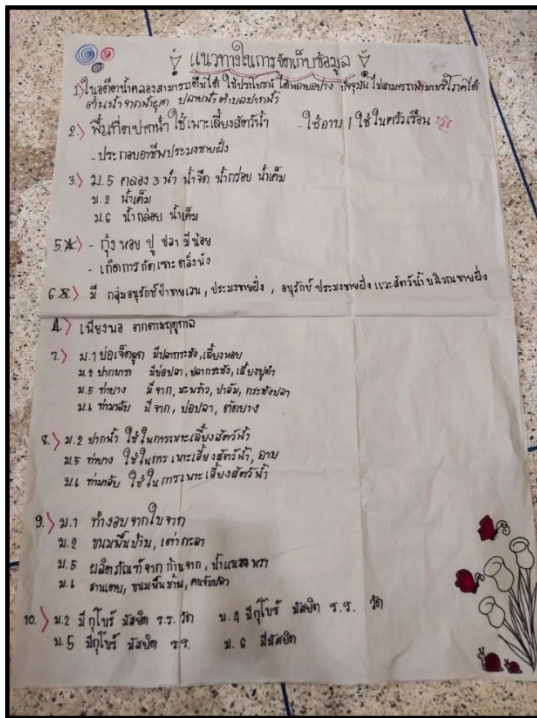 แนวทางในการจัดเก็บข้อมูล
1) ในอดีตน้ำคลองสามารถดื่มได้ ใช้ประโยชน์ได้หลายอย่าง ปัจจุบันไม่สามารถนำมาบริโภคได้
ปลายน้ำตำบลปากน้ำ
2.) พื้นที่ต.ปากน้ำ ใช้เพาะเลี้ยงสัตว์น้ำ - ใช้อาบ / ใช้ในครัวเรือน
- ประกอบอาชีพประมงชายฝั่ง
3.) ม.5 คลอง 3 น้ำ น้ำจืด น้ำกร่อย น้ำเค็ม
ม.2 น้ำเค็ม
ม.6 น้ำกล่อย น้ำเค็ม
5.) - กุ้ง หอย ปู ปลา มีน้อย
- เกิดการกัดเซาะตลิ่งพัง
6) มี กลุ่มอนุรักษ์ป่าชายเลน, ประมงชายฝั่ง, อนุรักษ์ประมงชายฝั่งและสัตว์น้ำบริเวณชายฝั่ง
4.) เพียงพอ ตกตามฤดูกาล
7.) ม.1 บ่อเจ็ดลูก มีปลากระชัง, เลี้ยงหอย
ม.2 ปากบารา มีบ่อปลา, ปลากระชัง, เลี้ยงปูดำ
ม.5 ท่ายาง มีจาก, มะพร้าว, ปาล์ม, กระชังปลา
ม.6 ท่ามาลัย มีจาก, บ่อปลา, ตัดยาง
8.) ม.2 ปากน้ำ ใช้ในการเพาะเลี้ยงสัตว์น้ำ
ม.5 ท่ายาง ใช้ในการเพาะเลี้ยงสัตว์น้ำ, อาบ
ม.6 ท่ามาลัย ใช้ในการเพาะเลี้ยงสัตว์น้ำ
9.) ม.1 ทำงอบจากใบจาก
ม.2 ขนมพื้นบ้าน,
ม.5 ผลิตภัณฑ์จากก้านจาก,
ม.6 สานเตย, ขนมพื้นบ้าน,
10.) ม.2 มีกุโบร์ มัสยิด ร.ร. วัด ม.4 มีกุโบร์ มัสยิด ร.ร. วัด
ม.5 มีกุโบร์ มัสยิด ร.ร. ม.6 มีมัสยิด